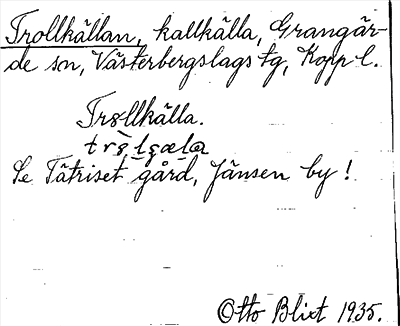 Trollkällan, kallkälla, Grangär-
de sn, Västerbergslags tg, Kopp l.
Trollkälla.
Se Tätriset gård, Jänsen by!
Otto Blixt 1935.